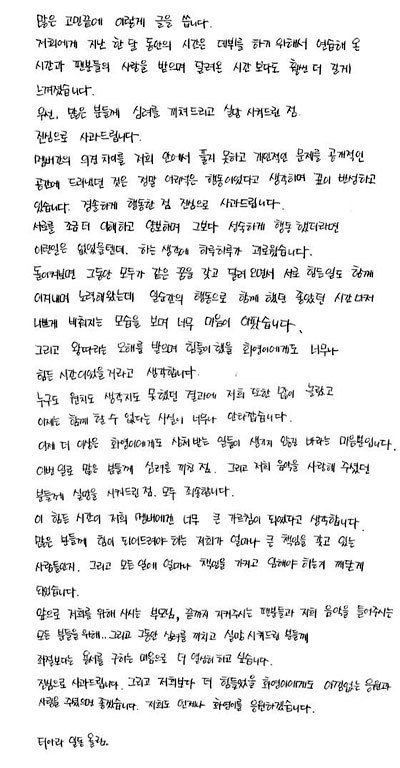 많은 고민끝에 이렇게 글을 씁니다.
저희에게 지난 한 달 동안의 시간은 데뷔를 하기 위해서 연습해 온
시간과 팬분들의 사랑을 받으며 달려온 시간 보다도 훨씬 더 길게
느껴졌습니다.
우선, 많은 분들께 심려를 끼쳐드리고 실망 시켜드린 점
진심으로 사과드립니다.
멤버간의 의견 차이를 저희 안에서 풀지 못하고 개인적인 문제를 공개적인
공간에 드러냈던 것은 정말 어리석은 행동이었다고 생각하며 깊이 반성하고
있습니다. 경솔하게 행동한 점 진심으로 사과드립니다.
서로를 조금 더 이해하고 양보하며 그보다 성숙하게 행동 했더라면
이런일은 없었을텐데.. 하는 생각에 하루하루가 괴로웠습니다.
돌이켜보면 그동안 모두가 같은 꿈을 갖고 달려 오면서 서로 힘든일도 함께
이겨내며 노력해왔는데 일순간의 행동으로 함께 했던 좋았던 시간마저
나쁘게 비춰지는 모습을 보며 너무 마음이 아팠습니다.
그리고 왕따라는 오해를 받으며 힘들어했을 화영이에게도 너무나
힘든 시간이었을거라고 생각합니다.
누구도 원치도 생각지도 못했던 결과에 저희 또한 많이 놀랐고
이제는 함께 할 수 없다는 사실이 너무나 안타깝습니다.
이제 더 이상은 화영이에게도 상처 받는 일들이 생기지 않길 바라는 마음뿐입니다.
이번 일로 많은 분들께 심려를 끼친 점. 그리고 저희 음악을 사랑해 주셨던
분들께 실망을 시켜드린 점. 모두 죄송합니다.
이 힘든 시간이 저희 멤버에겐 너무 큰 가르침이 되었다고 생각합니다.
많은 분들께 힘이 되어드려야 하는 저희가 얼마나 큰 책임을 갖고 있는
사람들인지. 그리고 모든일에 얼마나 책임을 가지고 임해야 하는지 깨닫게
되었습니다.
앞으로 저희를 위해 사시는 부모님, 끝까지 지켜주시는 팬분들과 저희 음악을 들어주시는
모든 분들을 위해... 그리고 그동안 심려를 끼치고 실망 시켜드린 분들께
좌절보다는 용서를 구하는 마음으로 더 열심히 하고 싶습니다.
진심으로 사과드립니다. 그리고 저희보다 더 힘들었을 화영이에게도 아낌없는 응원과
사랑을 주셨으면 좋겠습니다. 저희도 언제나 화영이를 응원하겠습니다.
티아라 일동 올림.